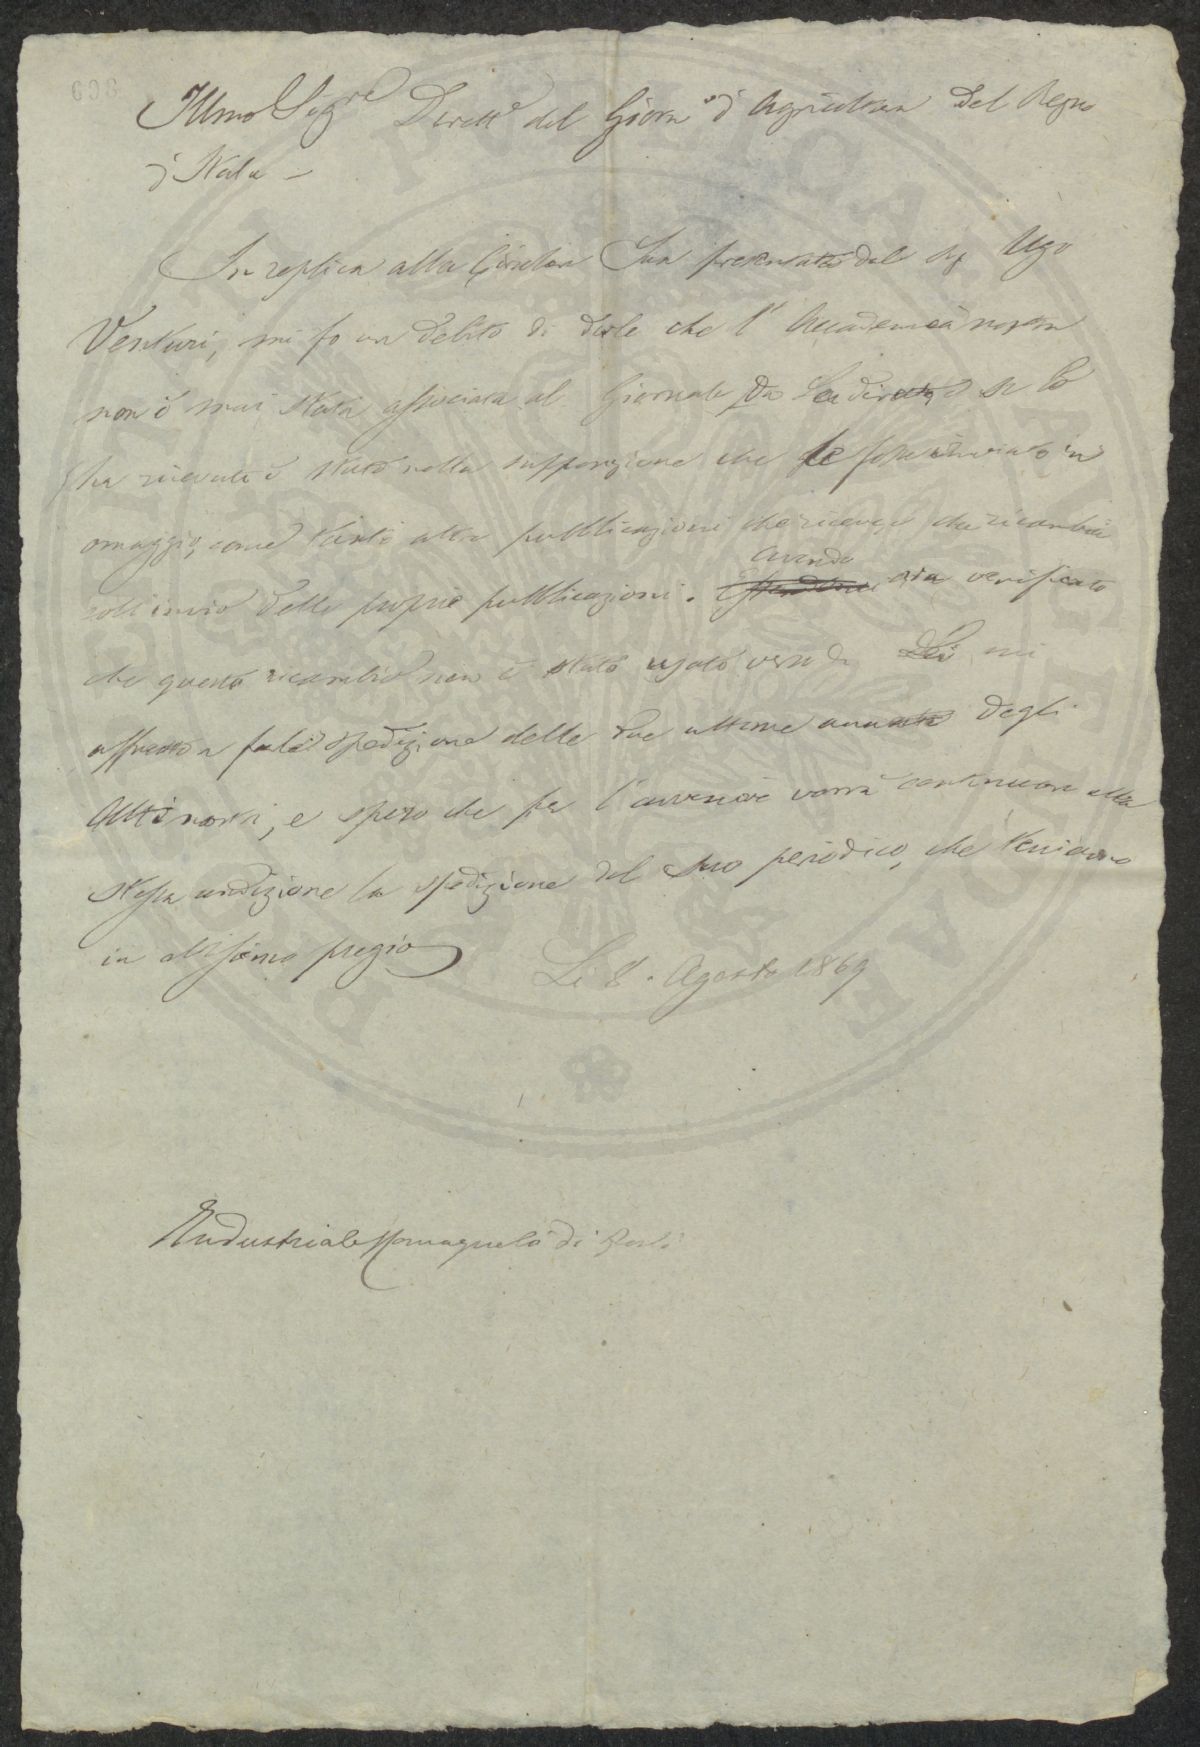 Illmo Sigre Dirett.e del Giorn.e d'Agricoltura del Regno
d'Italia –
In replica alla Circolare Sua presentata dal Sig Ugo
Venturi, mi fo un debito di dirle che l'Accademia nostra
non è mai stata associata al Giornale da Lei diretto e se lo
ha ricevuto è stato nella supposizione che le fosse inviato in
omaggio, come tante altre pubblicazioni che riceve, e che ricambia
coll'invio delle proprie pubblicazioni. Avendo ora verificato
che questo ricambio non è stato usato verso di Lei, mi
affretto a farle spedizione delle due ultime annate degli
Atti nostri, e spero che per l'avvenire vorrà continuare alla
stessa condizione la spedizione del suo periodico, che teniamo
in altissimo pregio
Li 8. Agosto 1869
Industriale Romagnola di Forlì